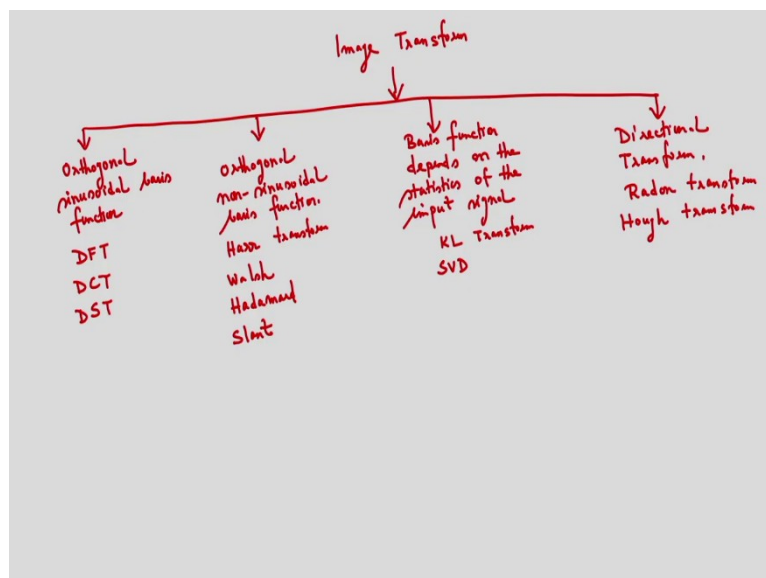 Image Transform
Orthogonal
sinusoidal basis
function
DFT
DCT
DST
Orthogonal
non-sinusoidal
basis function.
Haar transform
Walsh
Hadamard
Slant
Basis function
depends on the
statistics of the
input signal
KL Transform
SVD
Directional
Transform.
Radon transform
Hough transform